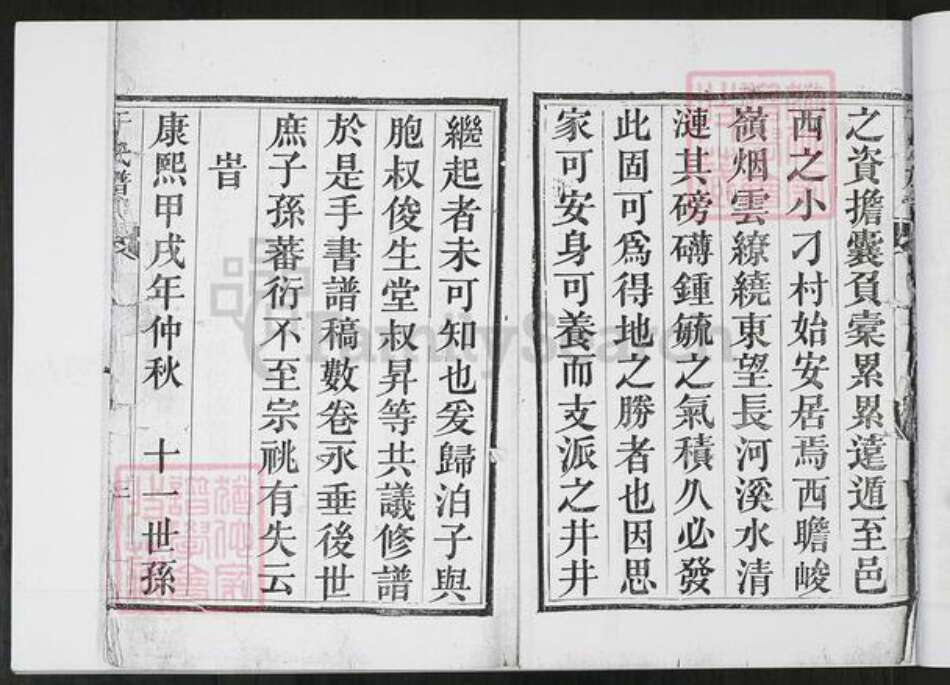 之資擔囊負橐累累遠遁至邑
西之小刁村始安居焉西瞻峻
嶺烟雲繚繞東望長河溪水清
漣其磅礴鍾毓之氣積久必發
此固可爲得地之勝者也因思
家可安身可養而支派之井井
繼起者未可知也爰歸泊子與
胞叔俊生堂叔昇等共議修譜
於是手書譜稿數卷永垂後世
庶子孫蕃衍不至宗祧有失云
旹
康熙甲戌年仲秋 十一世孫
FamilySearch